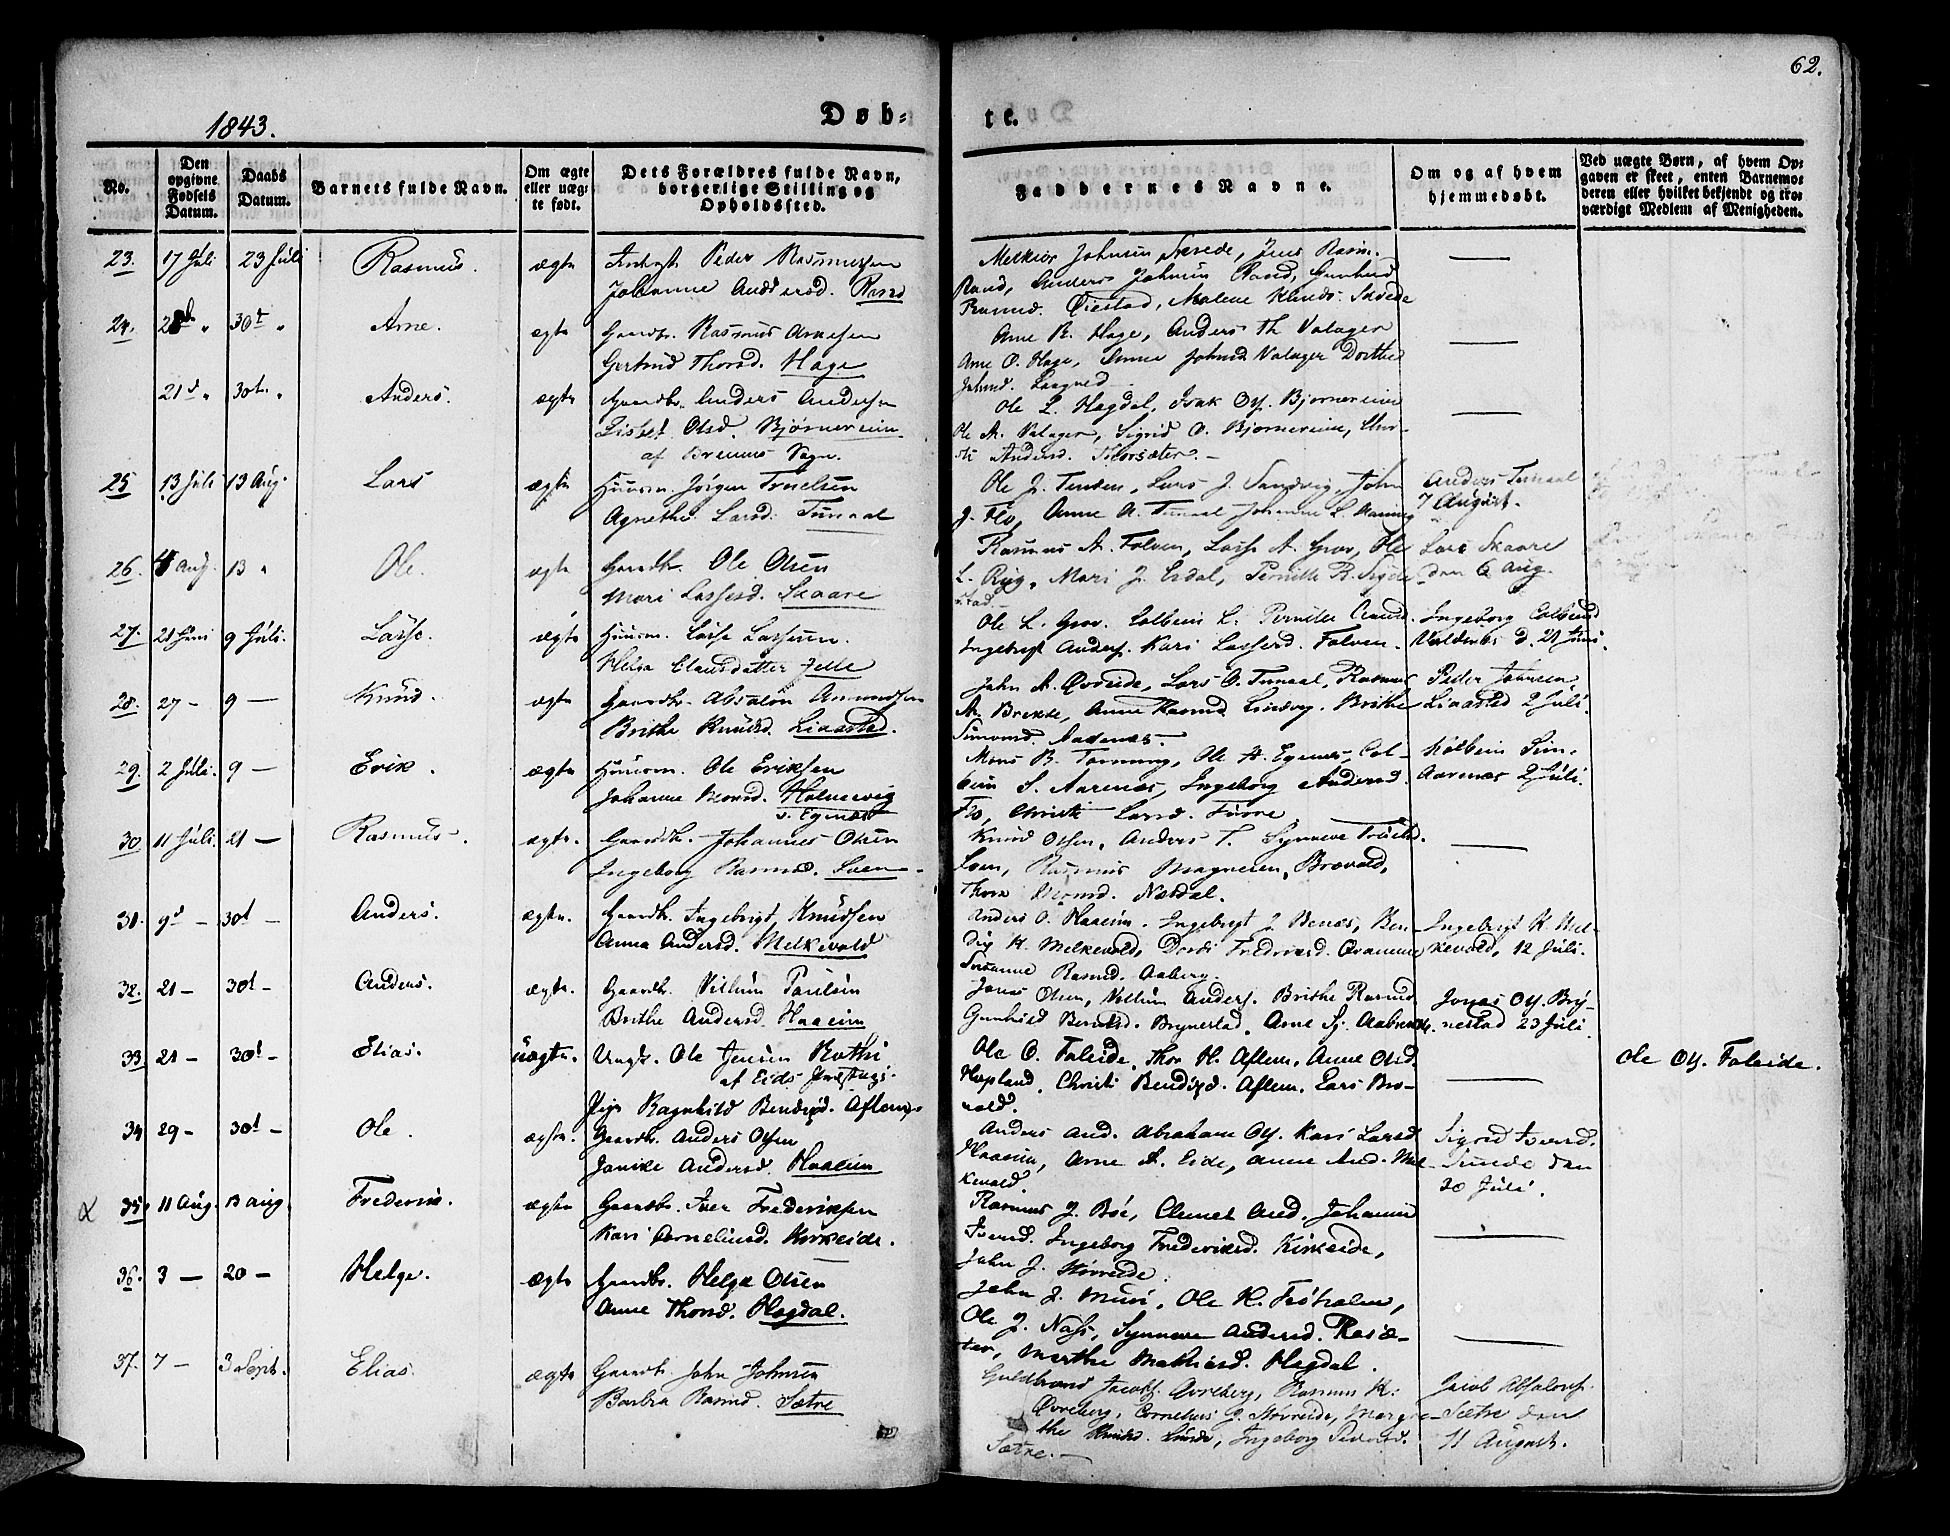 62.
1843.
Døb-
te.
No.
Den opgivne Fødsels Datum.
Daabs Datum.
Barnets fulde Navn.
Om ægte eller uæg-te født.
Dets Forældres fulde Navn, borgerlige Stilling og Opholdssted.
Faddernes Navne.
Om og af hvem hjemmedøbt.
Ved uægte Børn, af hvem Op-gaven er skeet, enten Barnemo-deren eller hvilket bekjendt og tro-værdigt Medlem af Menigheden.
23. 17 Juli 23 Juli Rasmus. ægte Peder Rasmussen
Johanne Andersd. Rand
Melkior Johnsen Skrede, Jens Rasm.
Rand, Anders Johnsen Rand, Gunhild
Rasmd. Øiestad, Malene Skrede
24. 30t Arne. ægte Gaardbr. Rasmus Arnesen
Gertrud Thorsd. Hage
Arne R. Hage, Anders Th. Valager
Arne O. Hage, Anne Johnsd. Valager Dorthe
Johnsd.
21d 30t. Anders. ægte Gaardbr. Anders Andersen
Lisbet Olsd. Bjørnereim
af Bremns Sogn.
Ole L. Hegdal, Isak Ols. Bjørnereim
Ole A. Valager, Sigrid O. Bjørnereim,
Andersd.
25 13 Juli 13 Aug. Lars ægte Huusm. Jørgen Truelsen
Agnethe Larsd. Tunaal
Ole J. Lars J. Sandvig, John
J. Flo, Anne A. Tunaal Johanne L.
Anders Tunaal
7 August.
26. Aug. 13 Ole. ægte Gaardbr. Ole Olsen
Mari Lassesd. Skaare
Rasmus A. Folven, Lasse A. Grov, Ole
L. Ryg, Mari J. Eidal, Pernille R.
Lars Skaare
den 6 Aug.
27. 21 Juni 9 Juli. Lasse. ægte Huusm. Lasse Lassesen.
Helga Clausdatter
Ole L. Grov. Colbein L. Pernille
Ingebrigt Anders. Kari Lassesd. Folven.
Ingeborg Colbeind
d. 21 Juni.
28. 27 - 9 — Knud. ægte Gaardbr. Absalon Amundsen
Brithe Knudsd. Liaasted.
John A. Øvreide, Lars O. Tunaal, Rasmus
A. Brekke, Anne Rasmd. Lindvig. Brithe
Simonsd. Aarenæs.
Peder Johnsen
Liaasted 2 Juli.
29. 2 Juli. 9 — Erik. ægte Huusm. Ole Eriksen
Johanne Holmevig
v. Egenæs
Mons B. Tonning, Ole A. Egenæs, Col-
bein S. Aarenæs, Ingeborg Andersd.
Flo, Christi Larsd. Fure
Kolbein Sim.
Aarenæs 2 Juli.
30 11 Juli. 21 — Rasmus. ægte. Gaardbr. Johannes Olsen
Ingeborg Rasmusd. Loen.
Knud Olsen, Anders T. Synneve
Loen, Rasmus Magnesen, Brævold,
Nesdal.
31. 9d — 30t — Anders. ægte. Gaardbr. Ingebrigt Knudsen
Anna Andersd. Melkevold
Anders O. Haaeim. Ingebrigt J. Benæs, Ben-
dig H. Melkevold, Dordi Fredrixsd. Qvamme
Susanne Rasmd. Aaberg.
Ingebrigt K. Mel-
kevold, 12 Juli.
32. 21 — 30t — Anders. ægte. Gaardbr. Villum Paulsen
Brithe Andersd. Haaeim
Jonas Olsen, Villum Anders. Brithe Rasmd.
Gunhild Berntsd. Brynestad, Arne Sj. Aabrekk.
Jonas Ols. Bry-
nestad 23 Juli
33. 21 — 30t. — Elias. uægte. Ungk. Ole Jensen
af Eids
Pige Ragnhild Bendixd. Aflem
Ole O. Faleide, Thor H. Aflem. Anne Olsd.
Hopland, Christi Bendixd. Aflem. Lars Bræ-
vold.
Ole Ols. Faleide.
34 29 — 30t — Ole. ægte. Gaardbr. Anders Olsen
Janike Andersd. Haaeim
Anders And. Abraham Ols. Kari Larsd.
Haaeim, Arne A. Eide, Anne And. Mel-
kevold.
Sigrid Iversd.
Sunde den
30 Juli.
35. 11 Aug. 13 aug. Frederik. ægte Gaardbr. Iver Frederiksen
Kari Corneliusd. Kirkeide.
Rasmus J. Bøe, Clemet And. Johanne
Iversd. Ingeborg Frederiksd. Kirkeide,
John J. Støvreide.
36. 3 — 20 — Helge. ægte Gaardbr. Helge Olsen
Anne Thorsd. Hegdal.
John J. Muri, Ole H. Frøholm,
Ole J. Næss, Synneve Andersd. Rosæ-
ter, Marthe Mathiasd. Hegdal.
37. 7 — 3 Sept. Elias. ægte Gaardbr. John Johnsen
Barbra Rasmd. Sætre
Guldbrand Jacobs. Øvreberg, Rasmus K.
Øvreberg, Cornelius J. Støvreide, Margre-
the Knudsd. Sunde, Ingeborg Pedersd.
Sætre. —
Jacob Absalons.
Sætre den
11 August.